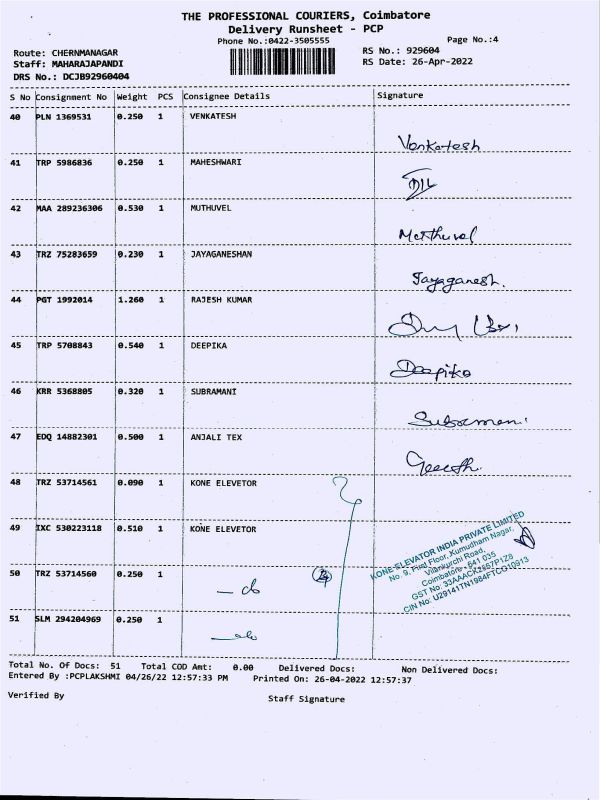 THE PROFESSIONAL COURIERS, Coimbatore
Delivery Runsheet - PCP
Phone No.:0422-3505555
Page No.:4
Route: CHERNMANAGAR
RS No.: 929604
Staff: MAHARAJAPANDI
RS Date: 26-Apr-2022
DRS No.: DCJB92960404
S No Consignment No Weight PCS Consignee Details Signature
40 PLN 1369531 0.250 1 VENKATESH
Venkatesh
41 TRP 5986836 0.250 1 MAHESHWARI
42 MAA 289236306 0.530 1 MUTHUVEL
Muthuvel
43 TRZ 75283659 0.230 1 JAYAGANESHAN
Jayaganesh.
44 PGT 1992014 1.260 1 RAJESH KUMAR
45 TRP 5708843 0.540 1 DEEPIKA
Deepika
46 KRR 5368805 0.320 1 SUBRAMANI
Subramani
47 EDQ 14882301 0.500 1 ANJALI TEX
48 TRZ 53714561 0.090 1 KONE ELEVETOR
49 IXC 530223118 0.510 1 KONE ELEVETOR
KONE ELEVATOR INDIA PRIVATE LIMITED
No. 9, First Floor, Kumudham Nagar,
Vilankurchi Road,
Coimbatore - 641 035
50 TRZ 53714560 0.250 1
— do
51 SLM 294204969 0.250 1
— do
Total No. Of Docs: 51 Total COD Amt: 0.00 Delivered Docs: Non Delivered Docs:
Entered By :PCPLAKSHMI 04/26/22 12:57:33 PM Printed On: 26-04-2022 12:57:37
Verified By
Staff Signature